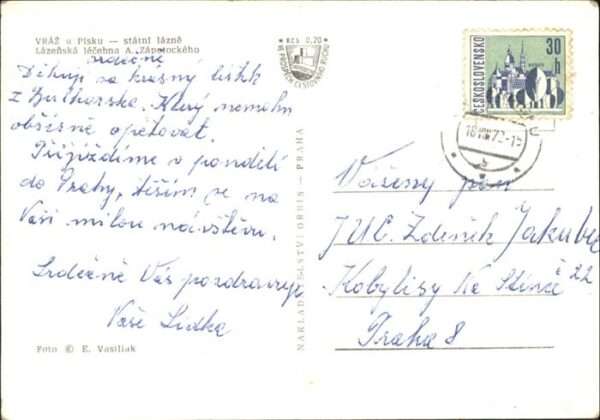 VRÁŽ u Písku — státní lázně
Lázeňská léčebna A. Zápotockého
srdečně
Děkuji za krásný lístek
z Bulharska. Který nemohu
obšírně opětovat.
Přijíždíme v pondělí
do Prahy, těším se na
Vaši milou návštěvu.
Srdečně Vás pozdravuje
Vaše Lidka
Foto © E. Vasiliak
KČS 0,20
VE PROSPĚCH CESTOVNÍHO RUCHU
NAKLADATELSTVÍ ORBIS — PRAHA
ČESKOSLOVENSKO
30
h
Vážený pan
JUC. Zdeněk Jakubec
Kobylisy Ke Stírce č 22
Praha 8